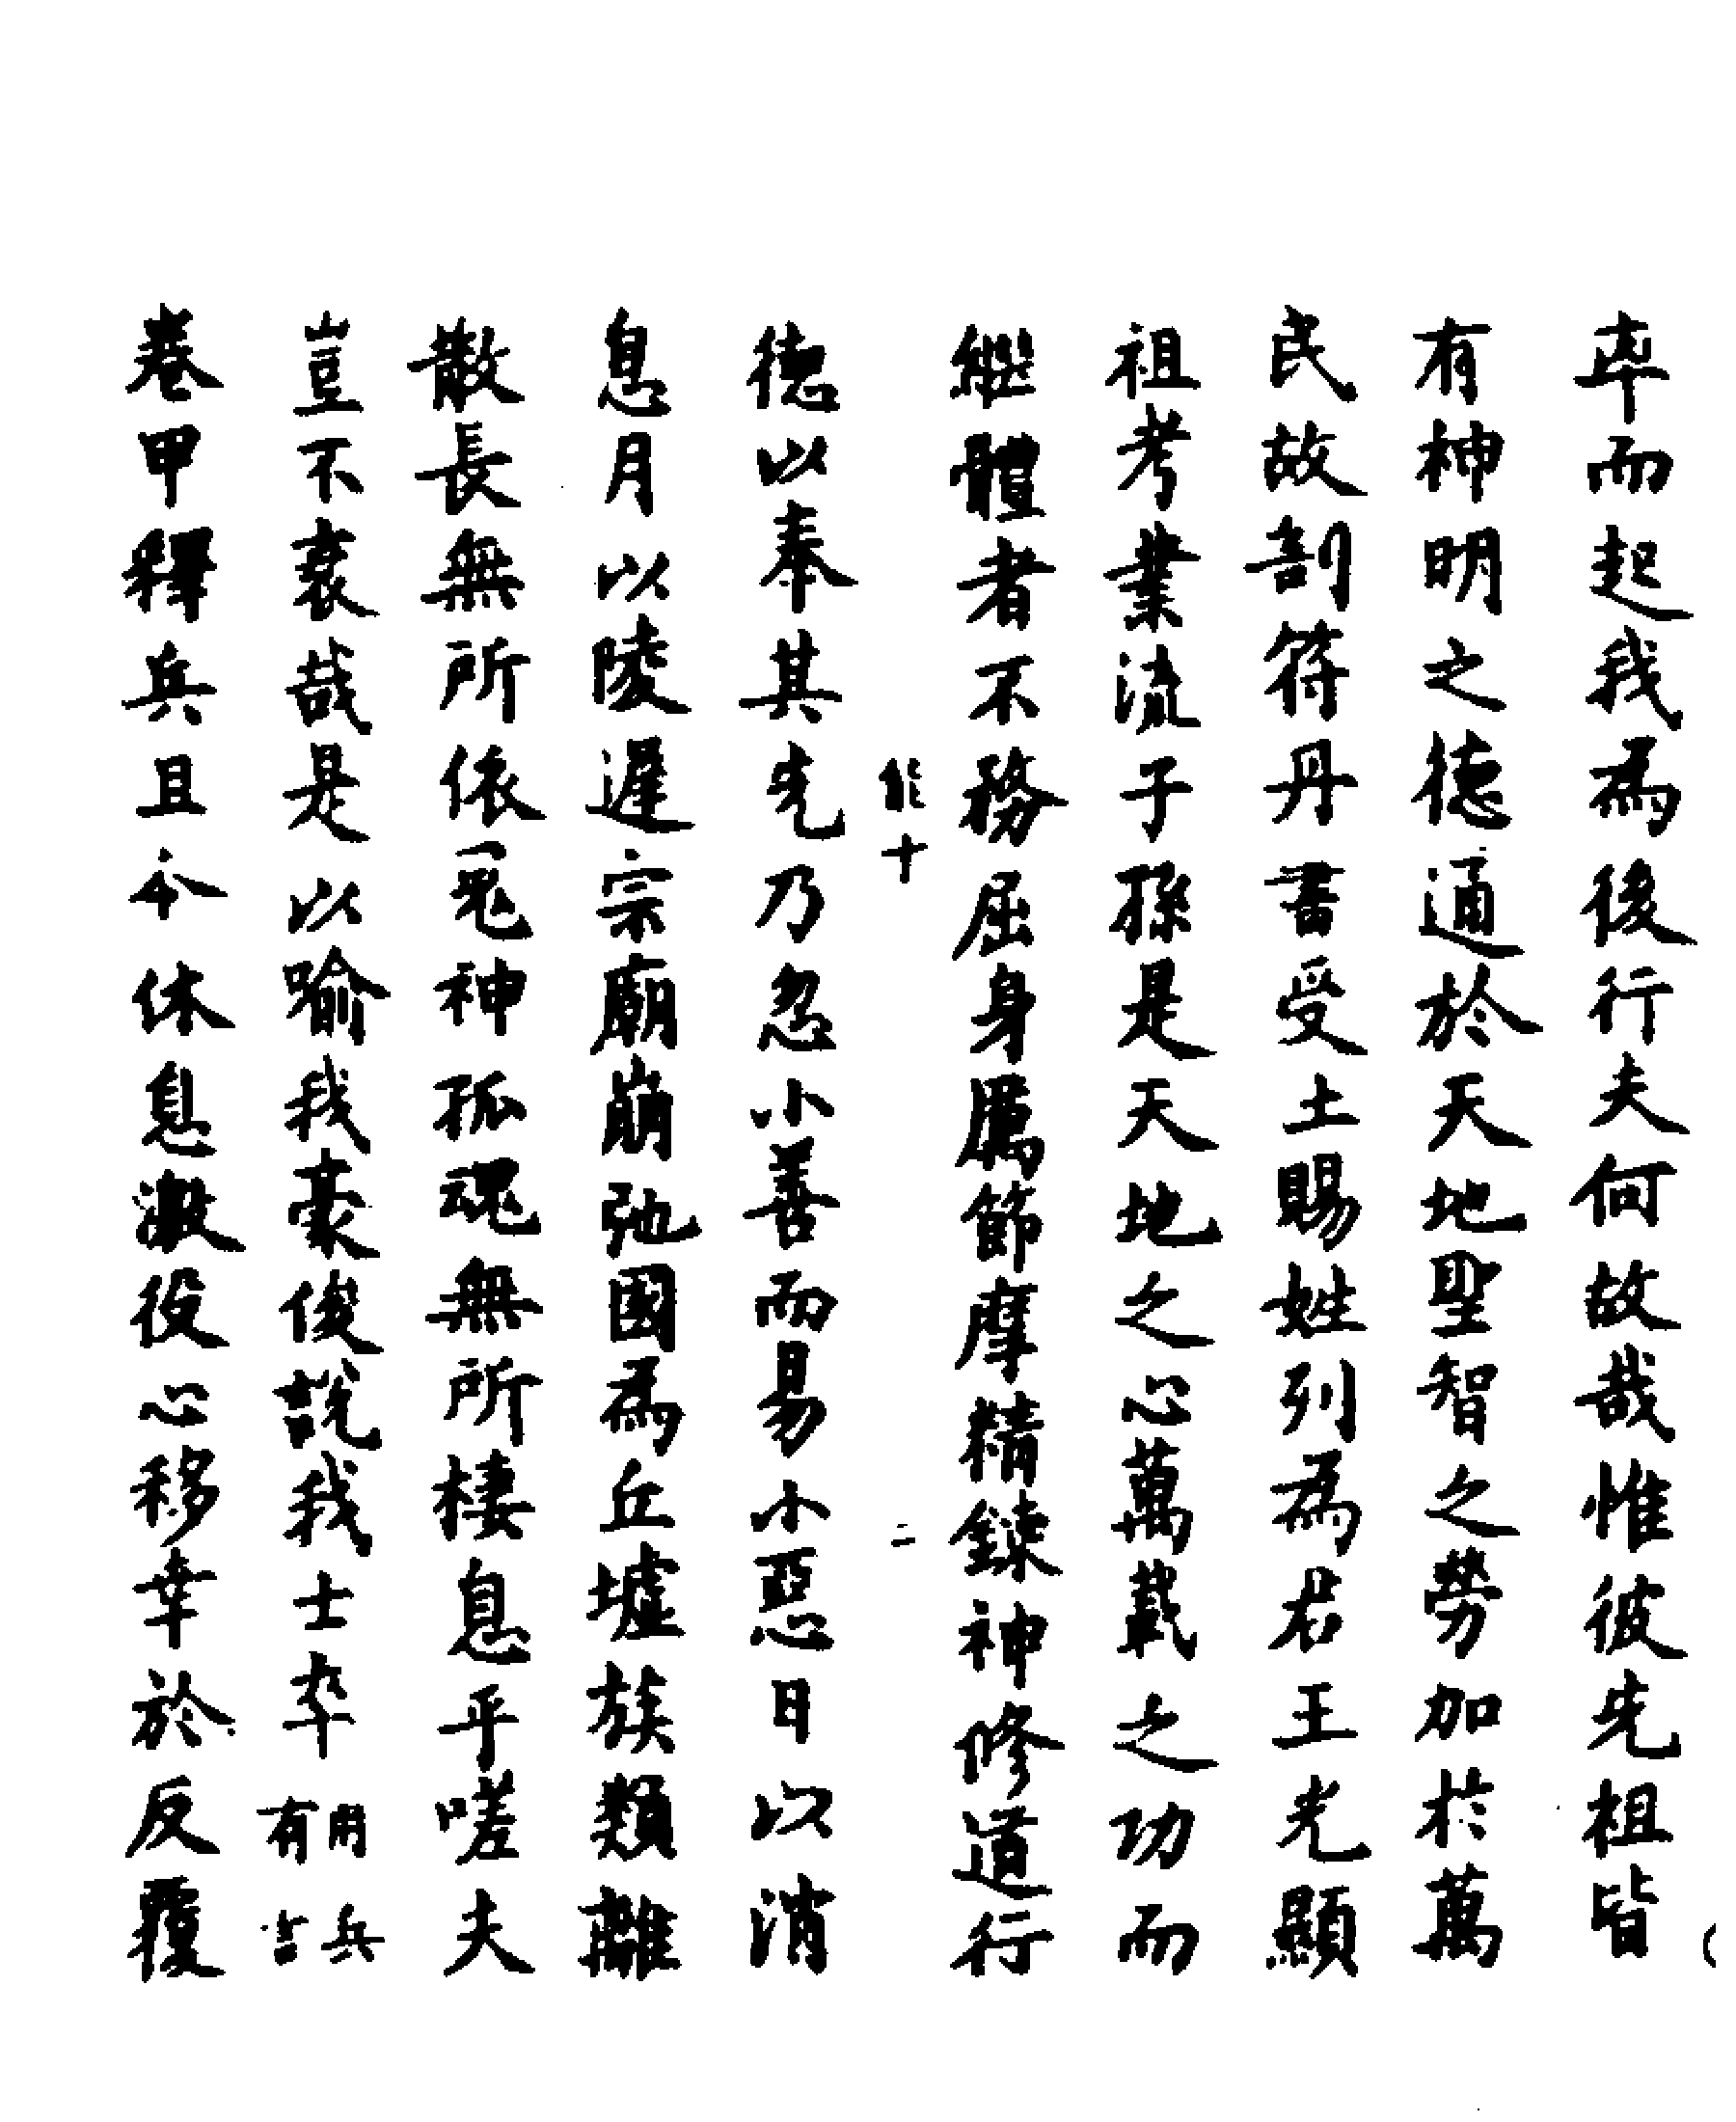 卒而起我為後行夫何故哉惟彼先祖皆
有神明之德通於天地聖智之勞加於萬
民故剖符丹書受土賜姓列為君王光顯
祖考業流子孫是天地之心萬載之功而
繼體者不務屈身厲節摩精鍊神修道行
能十 二
德以奉其先乃忽小善而易小惡日以消
息月以陵遲宗廟崩弛國為丘墟族類離
散長無所依鬼神孤魂無所棲息乎嗟夫
豈不哀哉是以喻我豪俊說我士卒用兵有言
卷甲釋兵且令休息激役心移幸於反覆